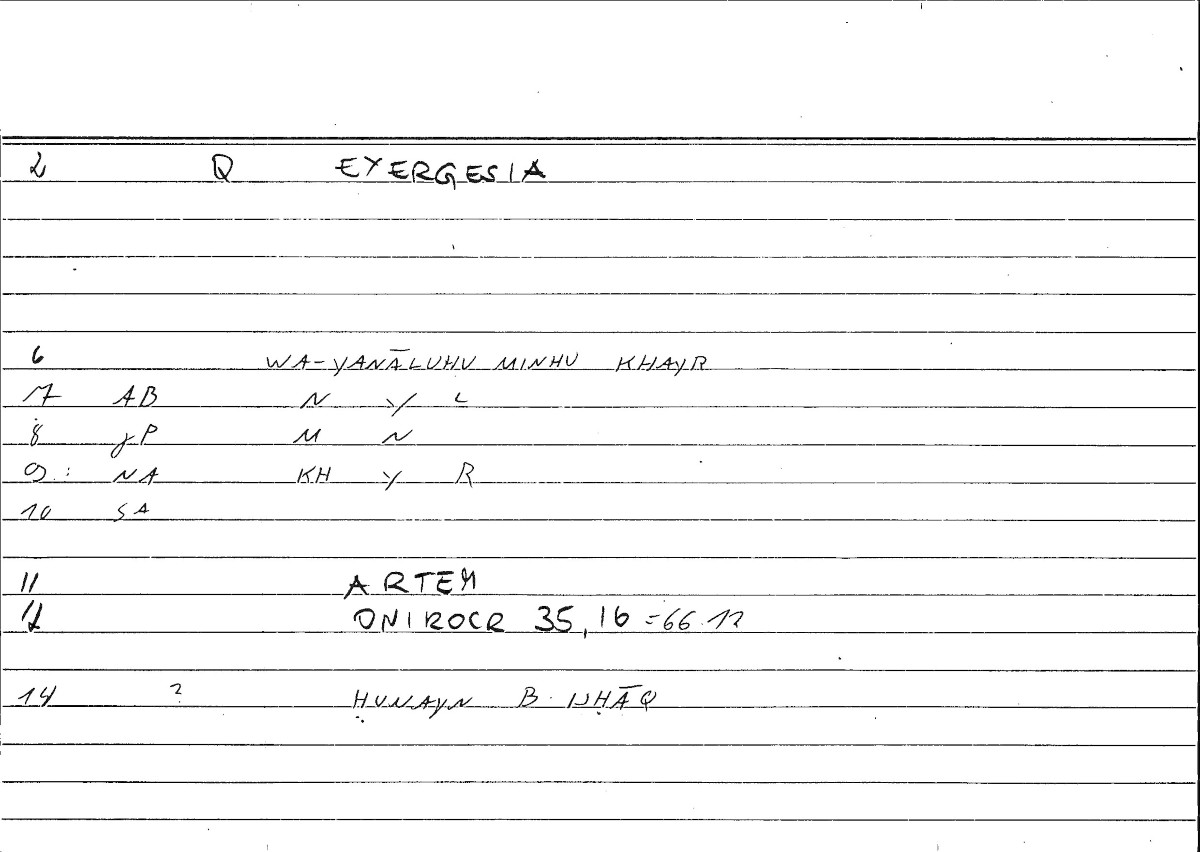 2 Q EYERGESIA
6 WA-YANĀLUHU MINHU KHAYR
7 AB N Y L
8 JP M N
9 : NA KH Y R
10 SA
11 ARTEM
12 ONIROCR 35,16 =66.12
14 2 ḤUNAYN B. ISḤĀQ